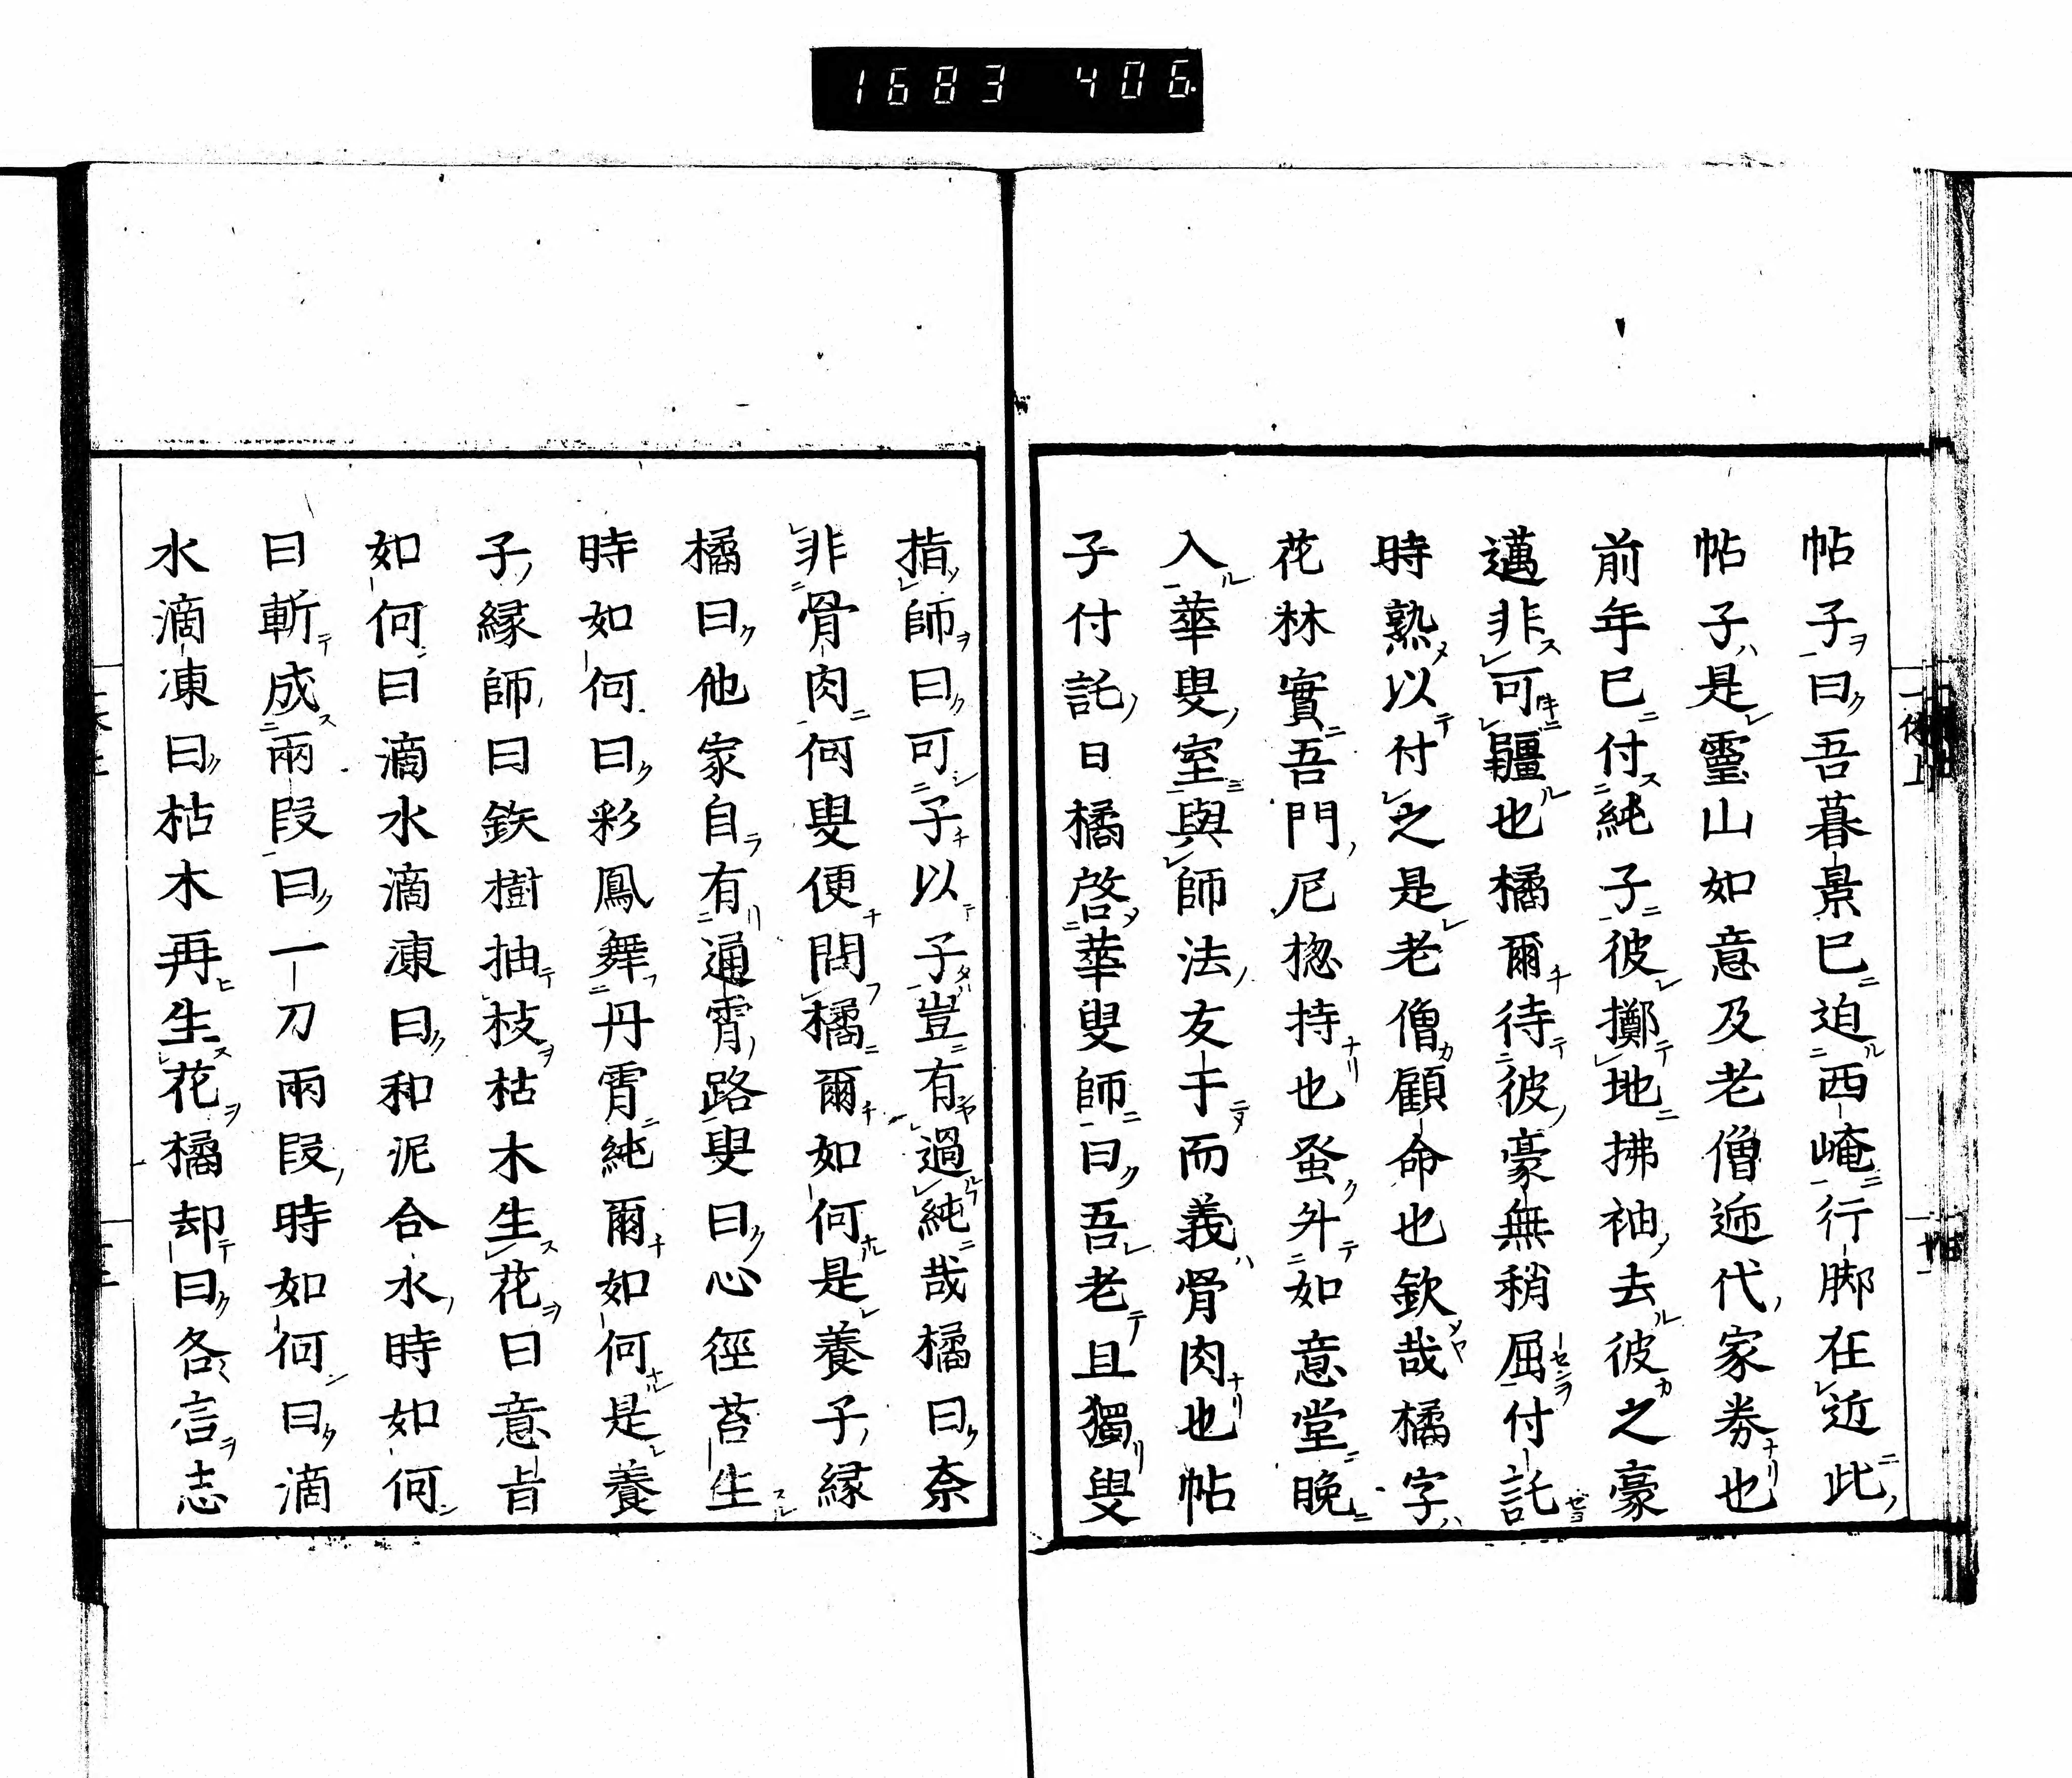 1683 406.
帖子曰吾暮景已迫西崦行脚在近此
帖子是靈山如意及老僧迊代家券也
前年已付純子彼擲地拂袖去彼之豪
邁非可韁也橘爾待彼豪無稍屈付託
時熟以付之是老僧顧命也欽哉橘字
花林實吾門尼揔持也蚤外如意堂晚
入華叟室與師法友于而義骨肉也帖
子付託日橘啓華叟師曰吾老且獨叟
指師曰可子以子豈有過純哉橘曰奈
非骨肉何叟便問橘爾如何是養子縁
橘曰他家自有通霄路叟曰心徑苔生
時如何曰彩鳳舞丹霄純爾如何是養
子縁師曰鉄樹抽枝枯木生花曰意旨
如何曰滴水滴凍曰和泥合水時如何
曰斬成兩段曰一刀兩段時如何曰滴
水滴凍曰枯木再生花橘却曰各言志